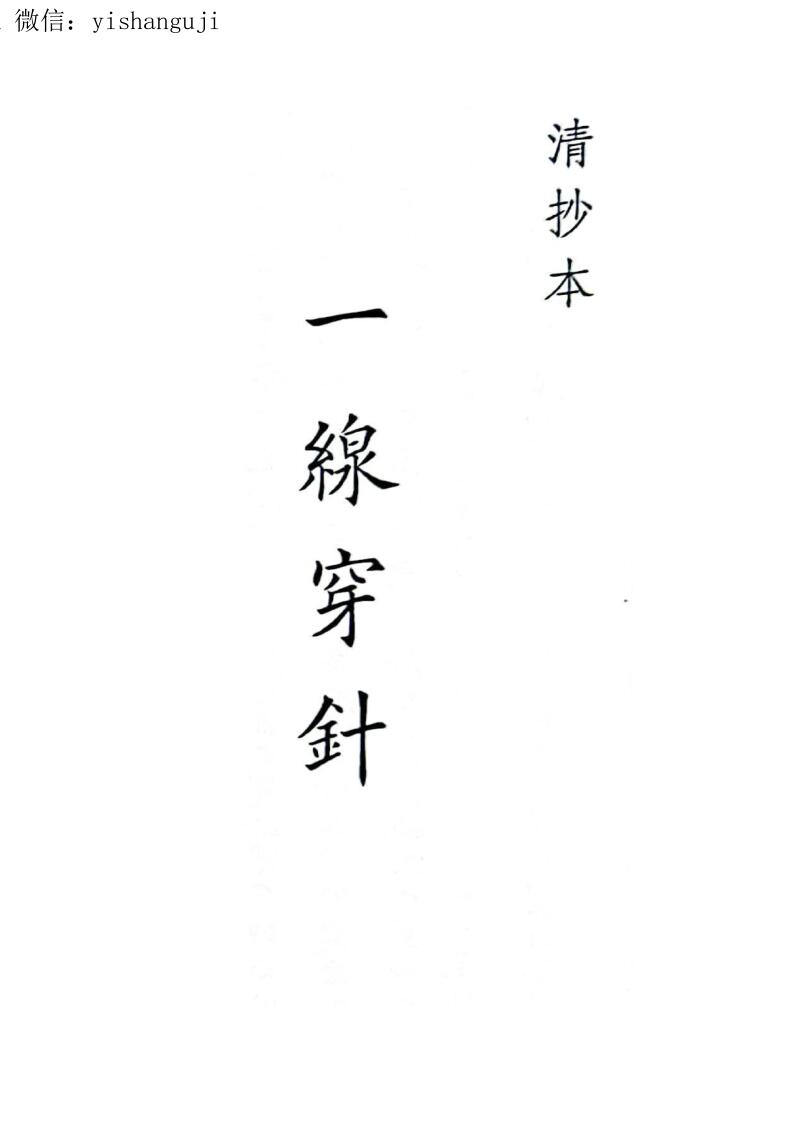 微信：yishanguji
清抄本
一線穿針